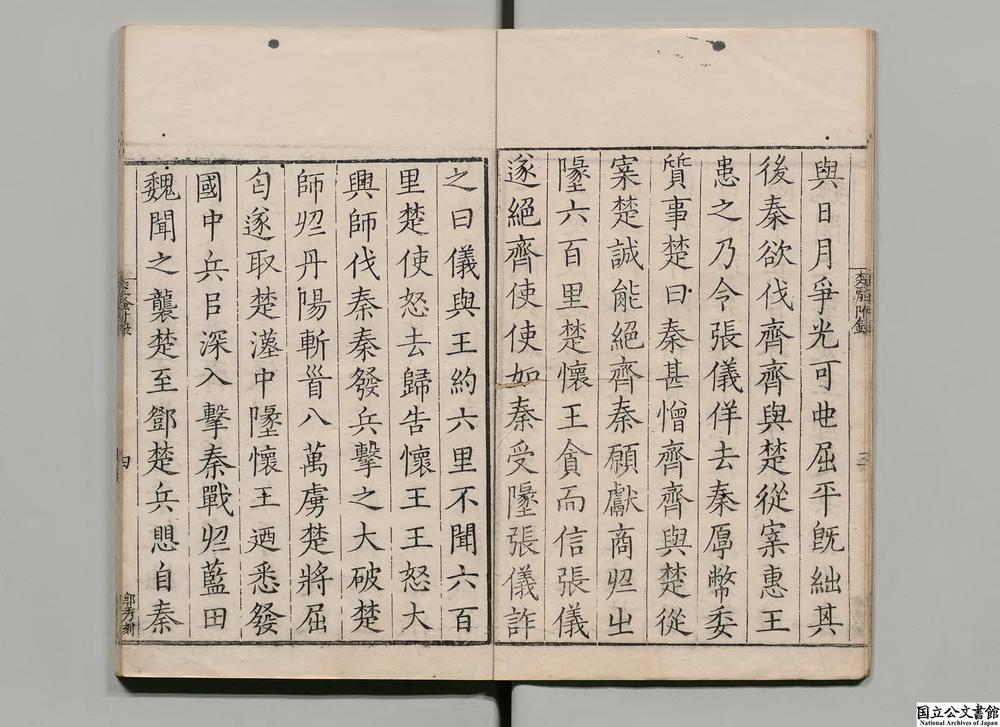 與日月爭光可也屈平旣絀其
後秦欲伐齊齊與楚從案惠王
患之乃令張儀佯去秦厚幣委
質事楚曰秦甚憎齊齊與楚從
案楚誠能絕齊秦願獻商於之
墬六百里楚懷王貪而信張儀
遂絕齊使使如秦受墬張儀詐
之曰儀與王約六里不聞六百
里楚使怒去歸告懷王王怒大
興師伐秦秦發兵擊之大破楚
師於丹陽斬首八萬虜楚將屈
匄遂取楚漢中墬懷王迺悉發
國中兵㠯深入擊秦戰於藍田
魏聞之襲楚至鄧楚兵懼自秦
楚辭附錄
三
四
郭秀刻
国立公文書館
National Archives of Japan